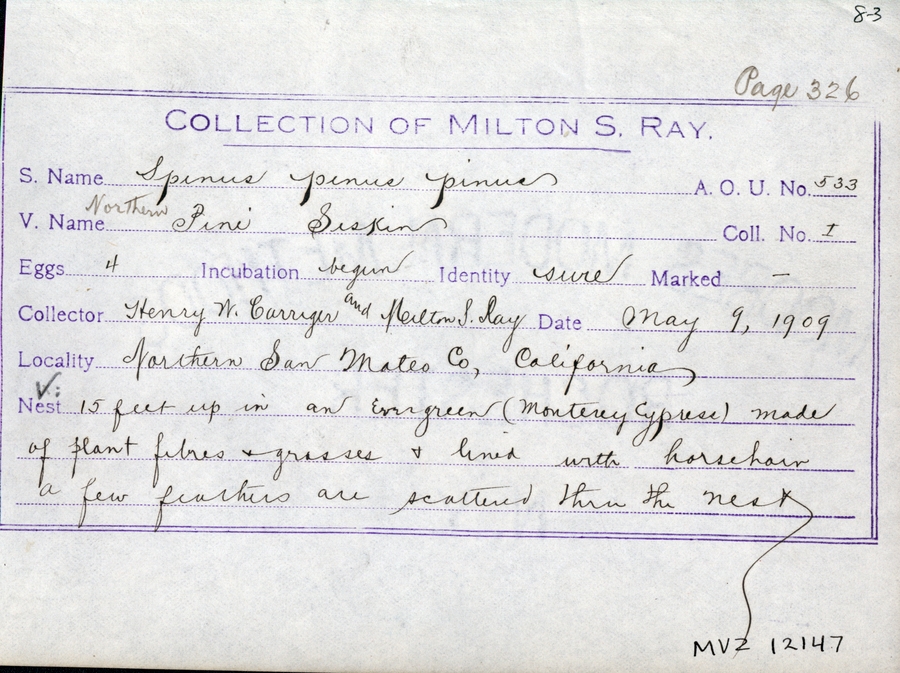 83
Page 326
COLLECTION OF MILTON S. RAY.
S. Name Spinus pinus pinus A. O. U. No. 533
Northern
V. Name Pine Siskin Coll. No. I
Eggs 4 Incubation begun Identity sure Marked —
Collector Henry W. Carriger and Milton S. Ray Date May 9, 1909
Locality Northern San Mateo Co, California
Nest 15 feet up in an Evergreen (Monterey Cypress) made
of plant fibres & grasses & lined with horsehair
a few feathers are scattered thru the nest
MVZ 12147